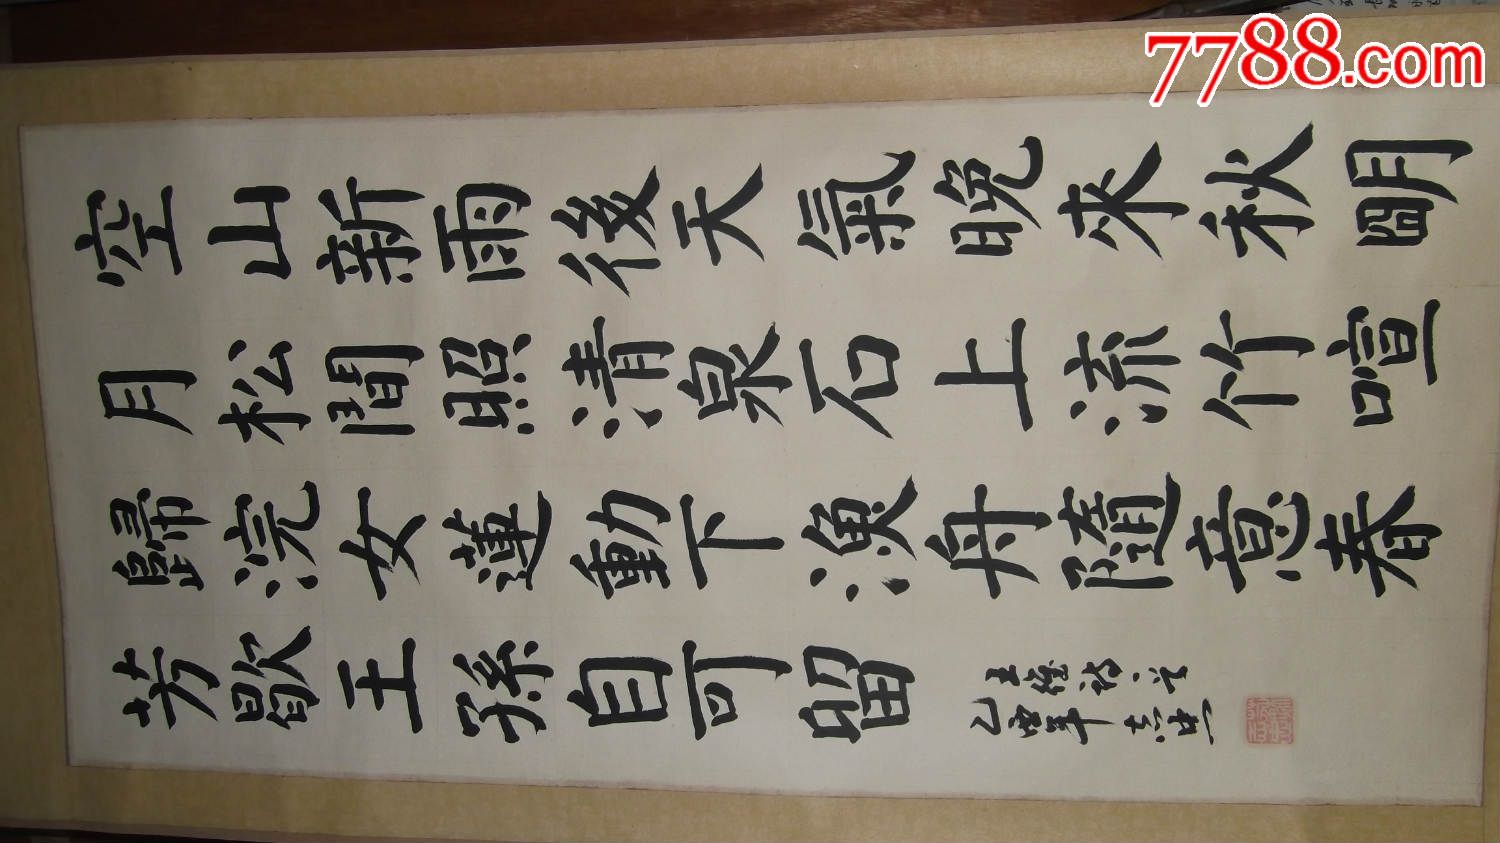 空山新雨後天氣晚來秋明
月松間照清泉石上流竹喧
歸浣女蓮動下漁舟隨意春
芳歇王孫自可留
王維詩一首
乙酉年
7788.com